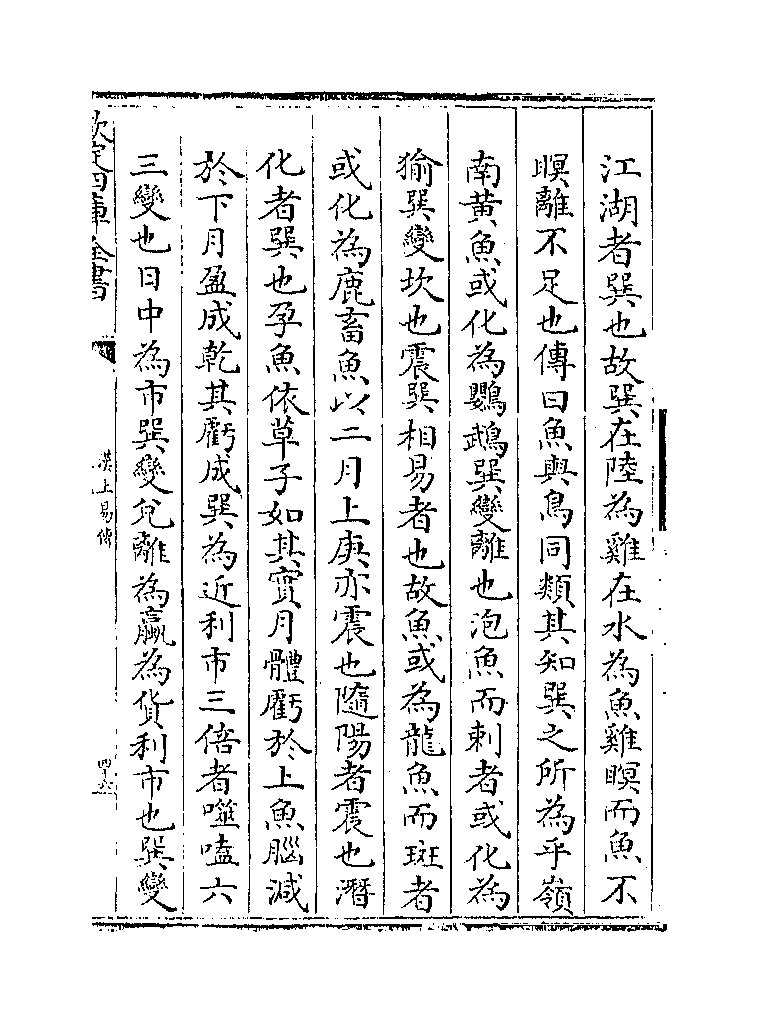 江湖者巽也故巽在陸為雞在水為魚雞瞑而魚不
瞑離不足也傳曰魚與鳥同類其知巽之所為乎嶺
南黄魚或化為鸚鵡巽變離也泡魚而刺者或化為
㺄巽變坎也震巽相易者也故魚或為龍魚而斑者
或化為鹿畜魚以二月上庚亦震也隨陽者震也潛
化者巽也孕魚依草子如其實月體虧於上魚腦減
於下月盈成乾其虧成巽為近利市三倍者噬嗑六
三變也日中為市巽變兌離為贏為貨利市也巽變
欽定四庫全書
漢上易傳
四十六